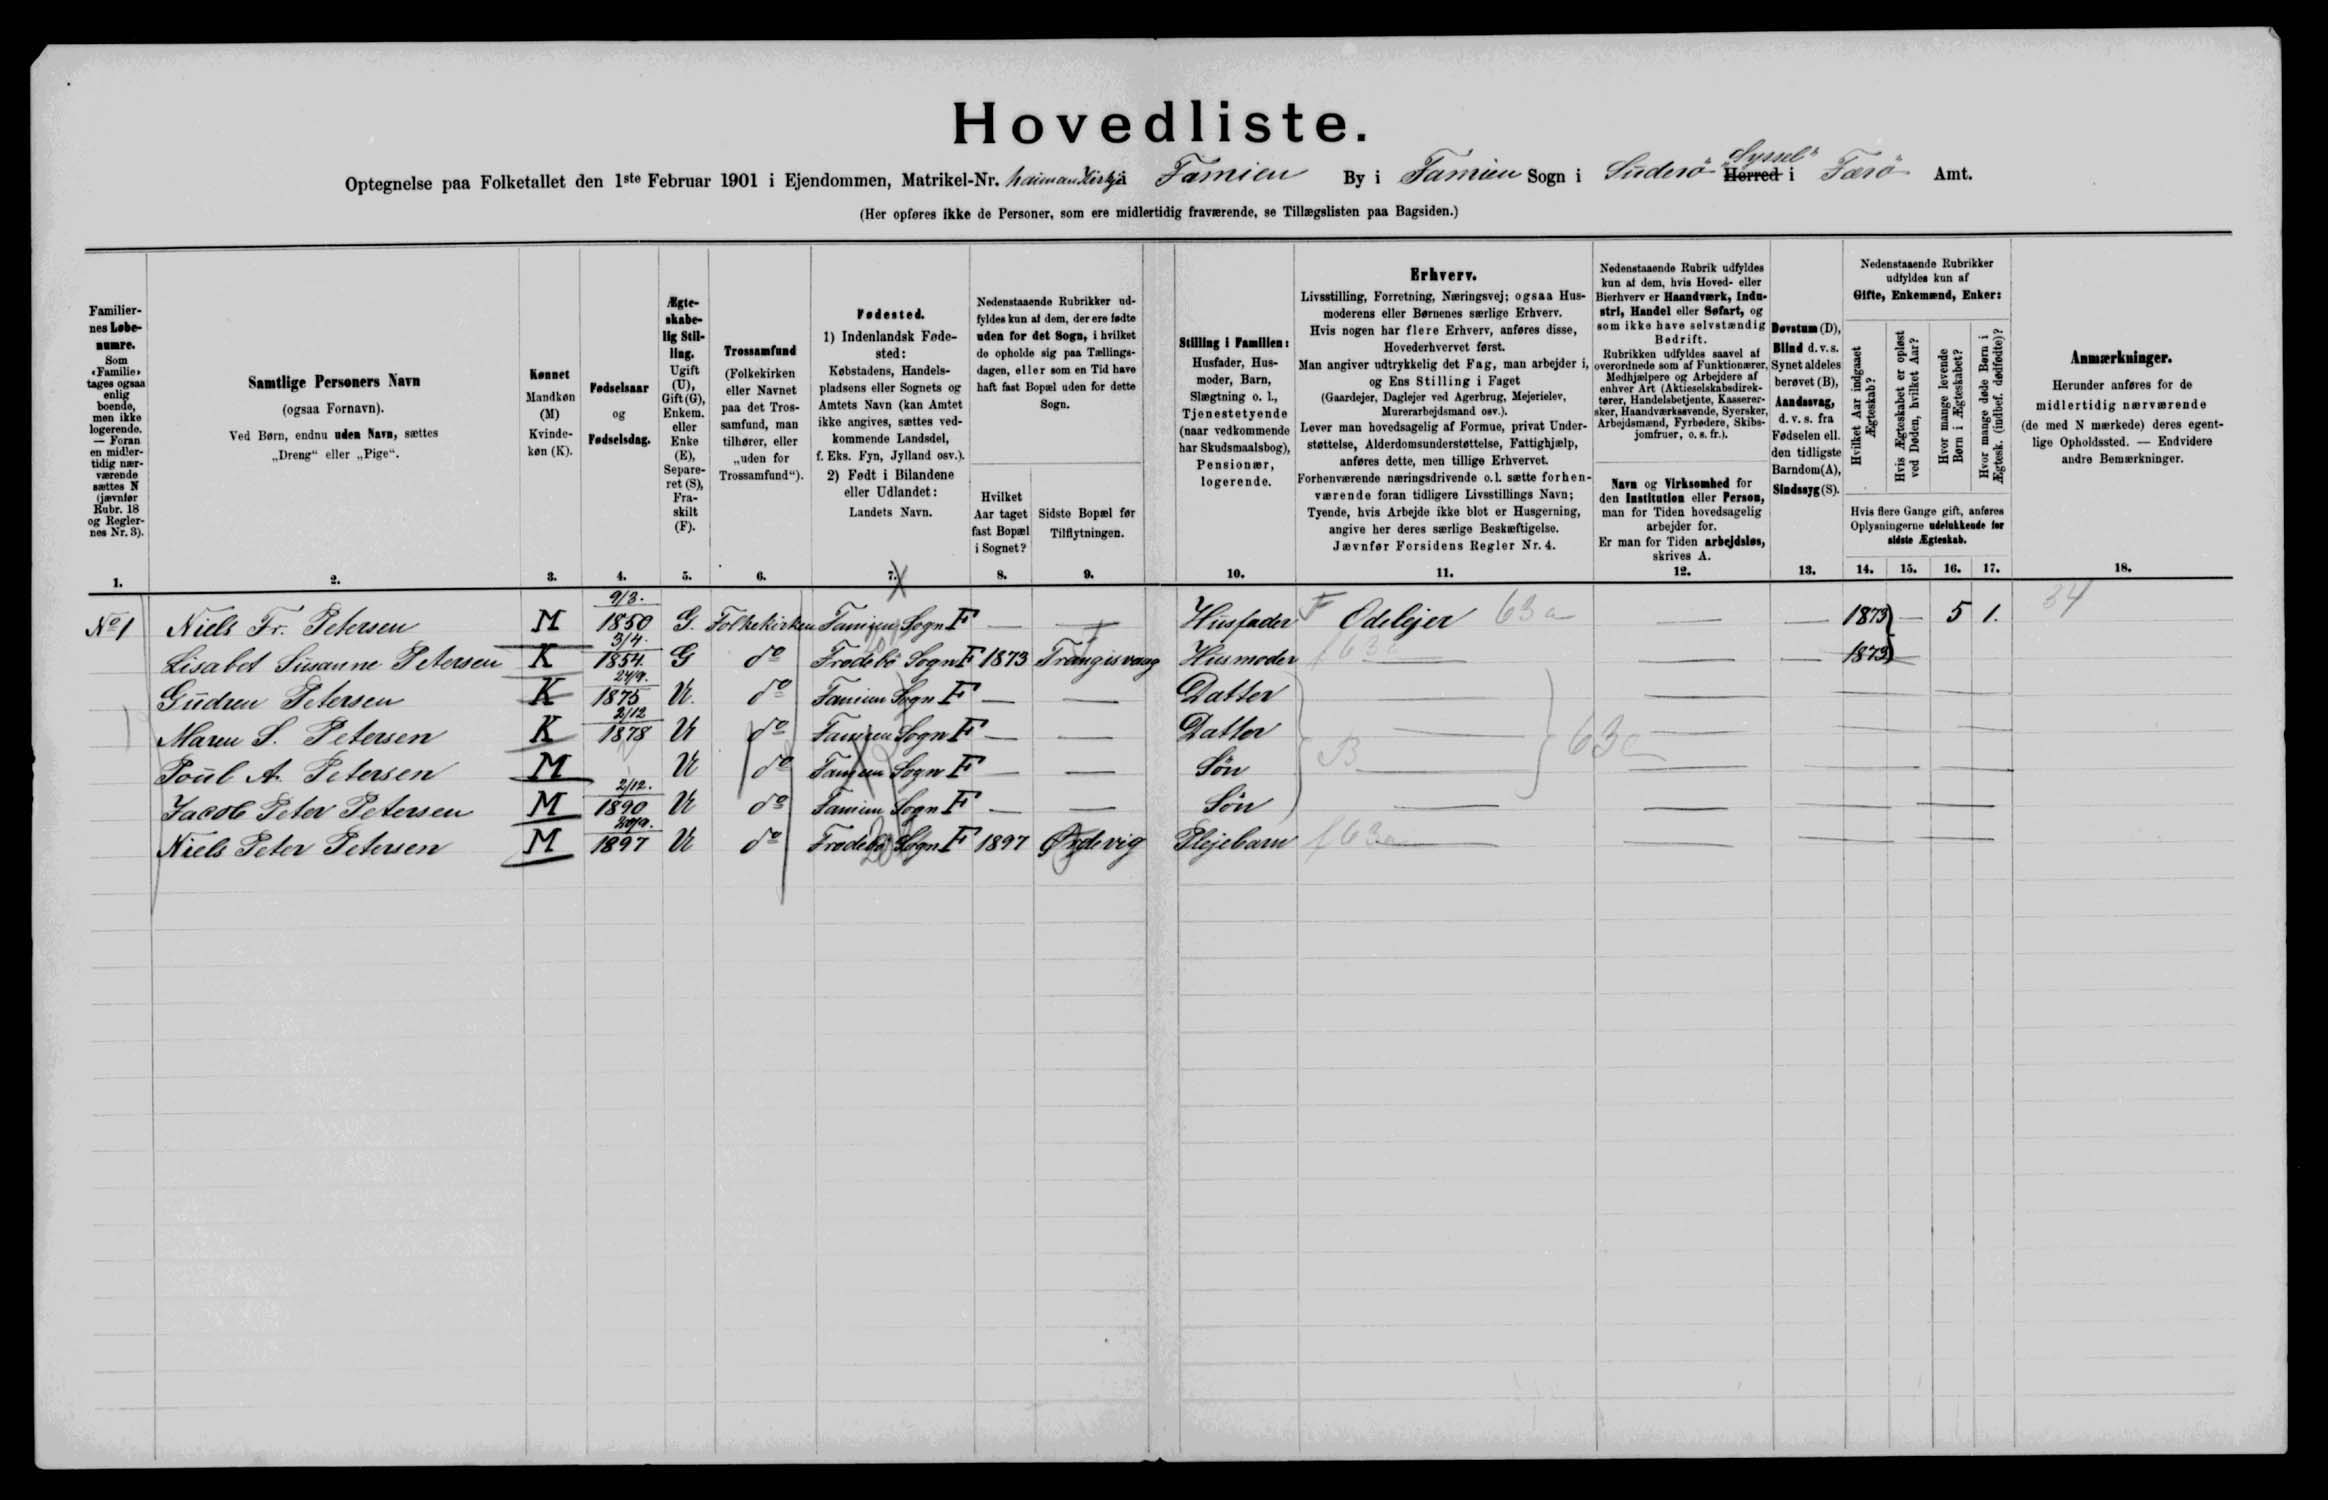 Hovedliste.
Optegnelse paa Folketallet den 1ste Februar 1901 i Ejendommen, Matrikel-Nr. Famien By i Famien Sogn i Suderö "Syssel" Herred i Færö Amt.
(Her opføres ikke de Personer, som ere midlertidig fraværende, se Tillægslisten paa Bagsiden.)
Familier-
nes Løbe-
numre.
Som
«Familie»
tages ogsaa
enlig
boende,
men ikke
logerende.
— Foran
en midler-
tidig nær-
værende
sættes N
(jævnfør
Rubr. 18
og Regler-
nes Nr. 3).
1.
Samtlige Personers Navn
(ogsaa Fornavn).
Ved Børn, endnu uden Navn, sættes
„Dreng“ eller „Pige“.
2.
Kønnet
Mandkøn
(M)
Kvinde-
køn (K).
3.
Fødselsaar
og
Fødselsdag.
4.
Ægte-
skabe-
lig Stil-
ling.
Ugift
(U),
Gift (G),
Enkem.
eller
Enke
(E),
Separe-
ret (S),
Fra-
skilt
(F).
5.
Trossamfund
(Folkekirken
eller Navnet
paa det Tros-
samfund, man
tilhører, eller
„uden for
Trossamfund“).
6.
Fødested.
1) Indenlandsk Føde-
sted:
Købstadens, Handels-
pladsens eller Sognets og
Amtets Navn (kan Amtet
ikke angives, sættes ved-
kommende Landsdel,
f. Eks. Fyn, Jylland osv.).
2) Født i Bilandene
eller Udlandet:
Landets Navn.
7.
Nedenstaaende Rubrikker ud-
fyldes kun af dem, der ere fødte
uden for det Sogn, i hvilket
de opholde sig paa Tællings-
dagen, eller som en Tid have
haft fast Bopæl uden for dette
Sogn.
Hvilket
Aar taget
fast Bopæl
i Sognet?
8.
Sidste Bopæl før
Tilflytningen.
9.
Stilling i Familien:
Husfader, Hus-
moder, Barn,
Slægtning o. l.,
Tjenestetyende
(naar vedkommende
har Skudsmaalsbog),
Pensionær,
logerende.
10.
Erhverv.
Livsstilling, Forretning, Næringsvej; ogsaa Hus-
moderens eller Børnenes særlige Erhverv.
Hvis nogen har flere Erhverv, anføres disse,
Hovederhvervet først.
Man angiver udtrykkelig det Fag, man arbejder i,
og Ens Stilling i Faget
(Gaardejer, Daglejer ved Agerbrug, Mejerielev,
Murerarbejdsmand osv.).
Lever man hovedsagelig af Formue, privat Under-
støttelse, Alderdomsunderstøttelse, Fattighjælp,
anføres dette, men tillige Erhvervet.
Forhenværende næringsdrivende o. l. sætte forhen-
værende foran tidligere Livsstillings Navn;
Tyende, hvis Arbejde ikke blot er Husgerning,
angive her deres særlige Beskæftigelse.
Jævnfør Forsidens Regler Nr. 4.
11.
Nedenstaaende Rubrik udfyldes
kun af dem, hvis Hoved- eller
Bierhverv er Haandværk, Indu-
stri, Handel eller Søfart, og
som ikke have selvstændig
Bedrift.
Rubrikken udfyldes saavel af
overordnede som af Funktionærer,
Medhjælpere og Arbejdere af
enhver Art (Aktieselskabsdirek-
tører, Handelsbetjente, Kasserer-
sker, Haandværkssvende, Syersker,
Arbejdsmænd, Fyrbødere, Skibs-
jomfruer, o. s. fr.).
Navn og Virksomhed for
den Institution eller Person,
man for Tiden hovedsagelig
arbejder for.
Er man for Tiden arbejdsløs,
skrives A.
12.
Døvstum (D),
Blind d. v. s.
Synet aldeles
berøvet (B),
Aandssvag,
d. v. s. fra
Fødselen ell.
den tidligste
Barndom (A),
Sindssyg (S).
13.
Nedenstaaende Rubrikker
udfyldes kun af
Gifte, Enkemænd, Enker:
Hvilket Aar indgaaet
Ægteskab?
Hvis Ægteskabet er opløst
ved Døden, hvilket Aar?
Hvor mange levende
Børn i Ægteskabet?
Hvor mange døde Børn i
Ægtesk. (indbef. dødfødte)?
Hvis flere Gange gift, anføres
Oplysningerne udelukkende for
sidste Ægteskab.
14. 15. 16. 17.
Anmærkninger.
Herunder anføres for de
midlertidig nærværende
(de med N mærkede) deres egent-
lige Opholdssted. — Endvidere
andre Bemærkninger.
18.
No 1 Niels Fr. Petersen M 9/3. 1850 G. Folkekirken Famien Sogn F — — Husfader F Odelejer 63a — — 1873 — 5 1. 34
Lisabet Susanne Petersen K 3/4. 1854. G do Frodebö Sogn F 1873 Trangisvaag Husmoder f 63a — — — 1873 —
Gudrun Petersen K 24/9. 1875 U. do Famien Sogn F — — Datter — — — —
Maren S. Petersen K 2/12 1878 U do Famien Sogn F — — Datter — 63a — — —
Poul A. Petersen M U do Famien Sogn F — — Sön B — — — —
Jacob Peter Petersen M 2/12. 1890 U do Famien Sogn F — — Sön — — — —
Niels Peter Petersen M 20/9. 1897 U do Frodebö Sogn F 1897 Ördevig Plejebarn f 63a — — — —